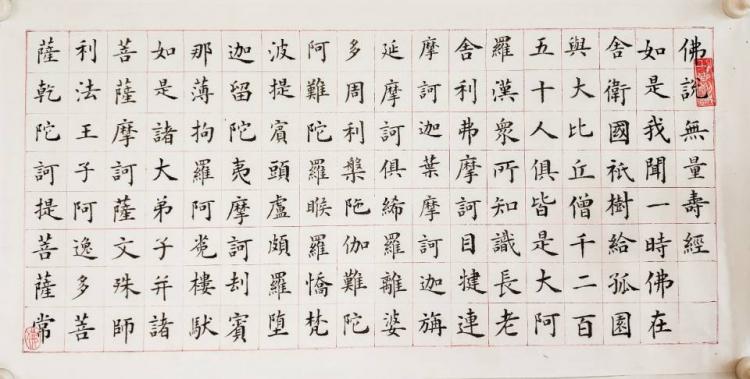 佛說無量壽經
如是我聞一時佛在
舍衛國祇樹給孤園
與大比丘僧千二百
五十人俱皆是大阿
羅漢眾所知識長老
舍利弗摩訶目犍連
摩訶迦葉摩訶迦旃
延摩訶俱絺羅離婆
多周利槃陁伽難陀
阿難陀羅睺羅憍梵
波提賓頭盧頗羅墮
迦留陀夷摩訶劫賓
那薄拘羅阿㝹樓馱
如是諸大弟子并諸
菩薩摩訶薩文殊師
利法王子阿逸多菩
薩乾陀訶提菩薩常